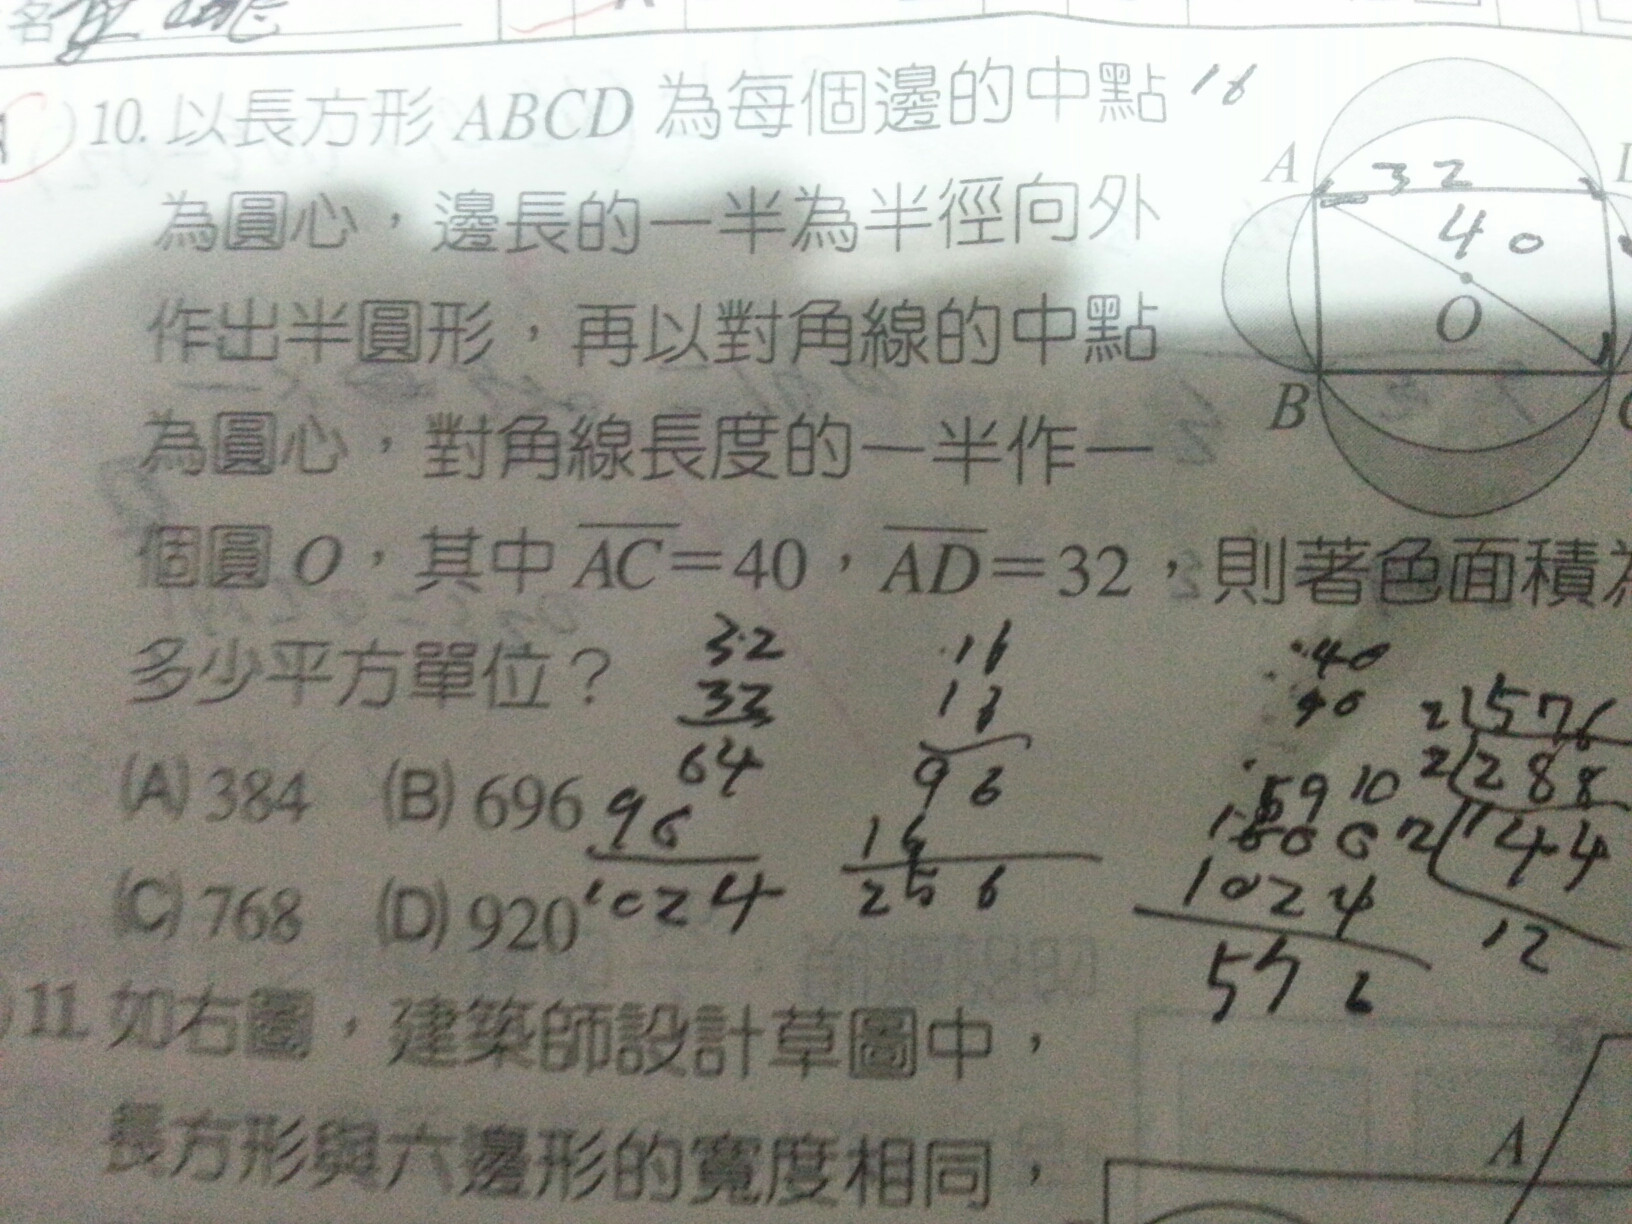 名
10. 以長方形 ABCD 為每個邊的中點 16
為圓心，邊長的一半為半徑向外
作出半圓形，再以對角線的中點
為圓心，對角線長度的一半作一
個圓 O，其中 AC=40，AD=32，則著色面積為
多少平方單位？
(A) 384 (B) 696
(C) 768 (D) 920
A
32
40
O
B
32
32
64
96
1024
16
16
96
16
256
40
40
1024
576
2 576
2 288
2 144
12
11. 如右圖，建築師設計草圖中，
長方形與六邊形的寬度相同，
A